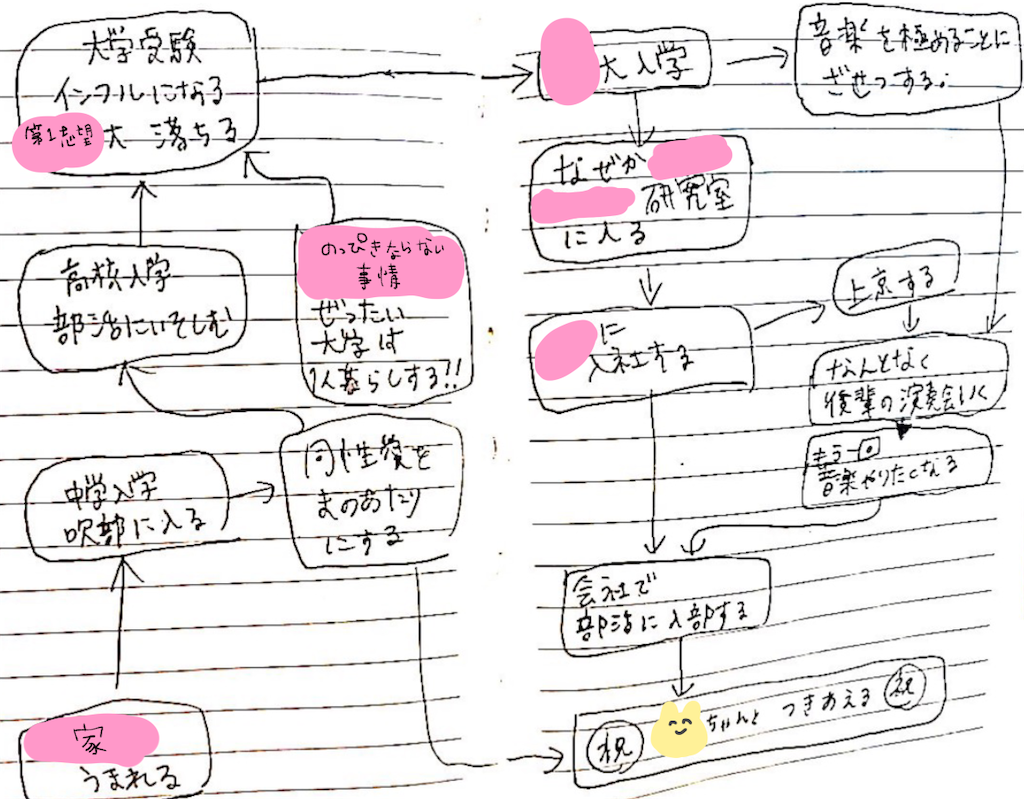 大学受験
インフルになる
第1志望 大 落ちる
高校入学
部活にいそしむ
のっぴきならない
事情
ぜったい
大学は
1人暮らしする!!
中学入学
吹部に入る
同性愛を
まのあたり
にする
家
うまれる
大入学
音楽を極めることに
ざせつする。
なぜか
研究室
に入る
に
入社する
上京する
なんとなく
後輩の演奏会いく
もう一回
音楽やりたくなる
会社で
部活に入部する
祝 ちゃんと つきあえる 祝